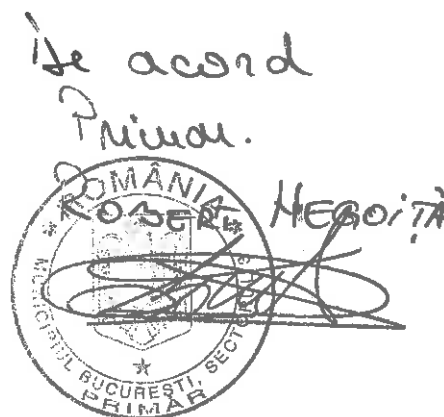 De acord
Primar.
ROBERT NEGOIȚĂ
ROMÂNIA
MUNICIPIUL BUCUREȘTI, SECTORUL
PRIMAR